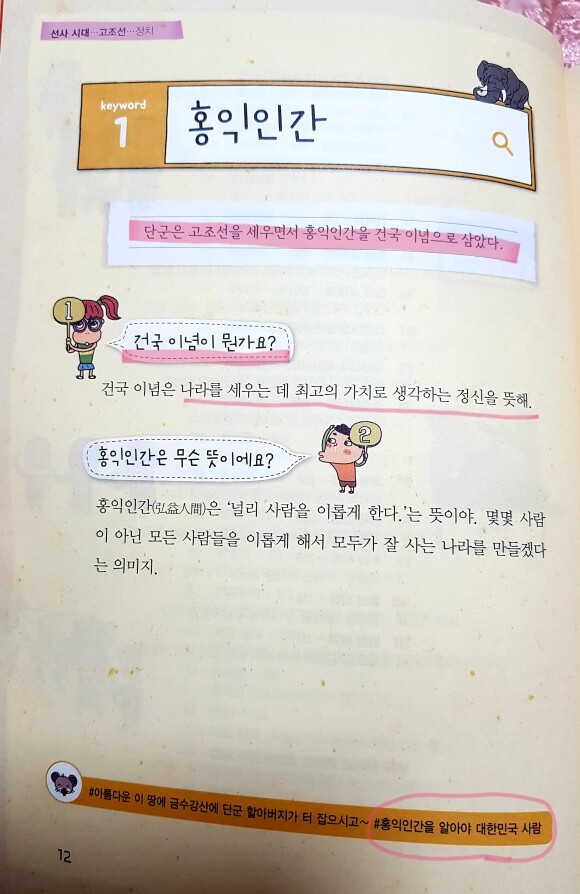 선사 시대…고조선…정치
keyword
1
홍익인간
단군은 고조선을 세우면서 홍익인간을 건국 이념으로 삼았다.
1
건국 이념이 뭔가요?
건국 이념은 나라를 세우는 데 최고의 가치로 생각하는 정신을 뜻해.
홍익인간은 무슨 뜻이에요?
2
홍익인간(弘益人間)은 ‘널리 사람을 이롭게 한다.’는 뜻이야. 몇몇 사람
이 아닌 모든 사람들을 이롭게 해서 모두가 잘 사는 나라를 만들겠다
는 의미지.
#아름다운 이 땅에 금수강산에 단군 할아버지가 터 잡으시고~ #홍익인간을 알아야 대한민국 사람
12